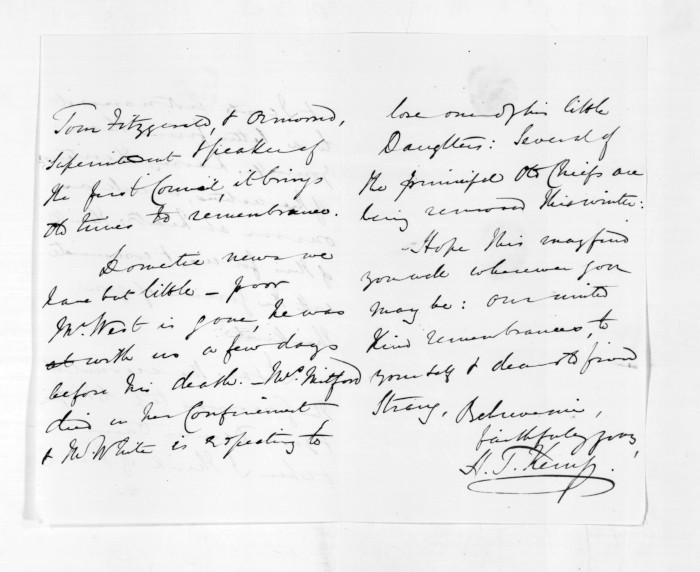 Tom Fitzgerald, & Ormond,
Superintendent & Speaker of
the first Council, it brings
old times to remembrance.
Domestic news we
have but little - poor
Mr. West is gone, he was
at with us a few days
before his death. - Mrs. Mitford
died in her Confinement
& Mr. White is expecting to
lose one of his little
Daughters: Several of
the principal old Chiefs are
being removed this winter:
- Hope this may find
you well wherever you
may be: our united
Kind remembrances, to
yourself & dear old friend
Strang, Believe me,
faithfully yours,
H. T. Kemp.